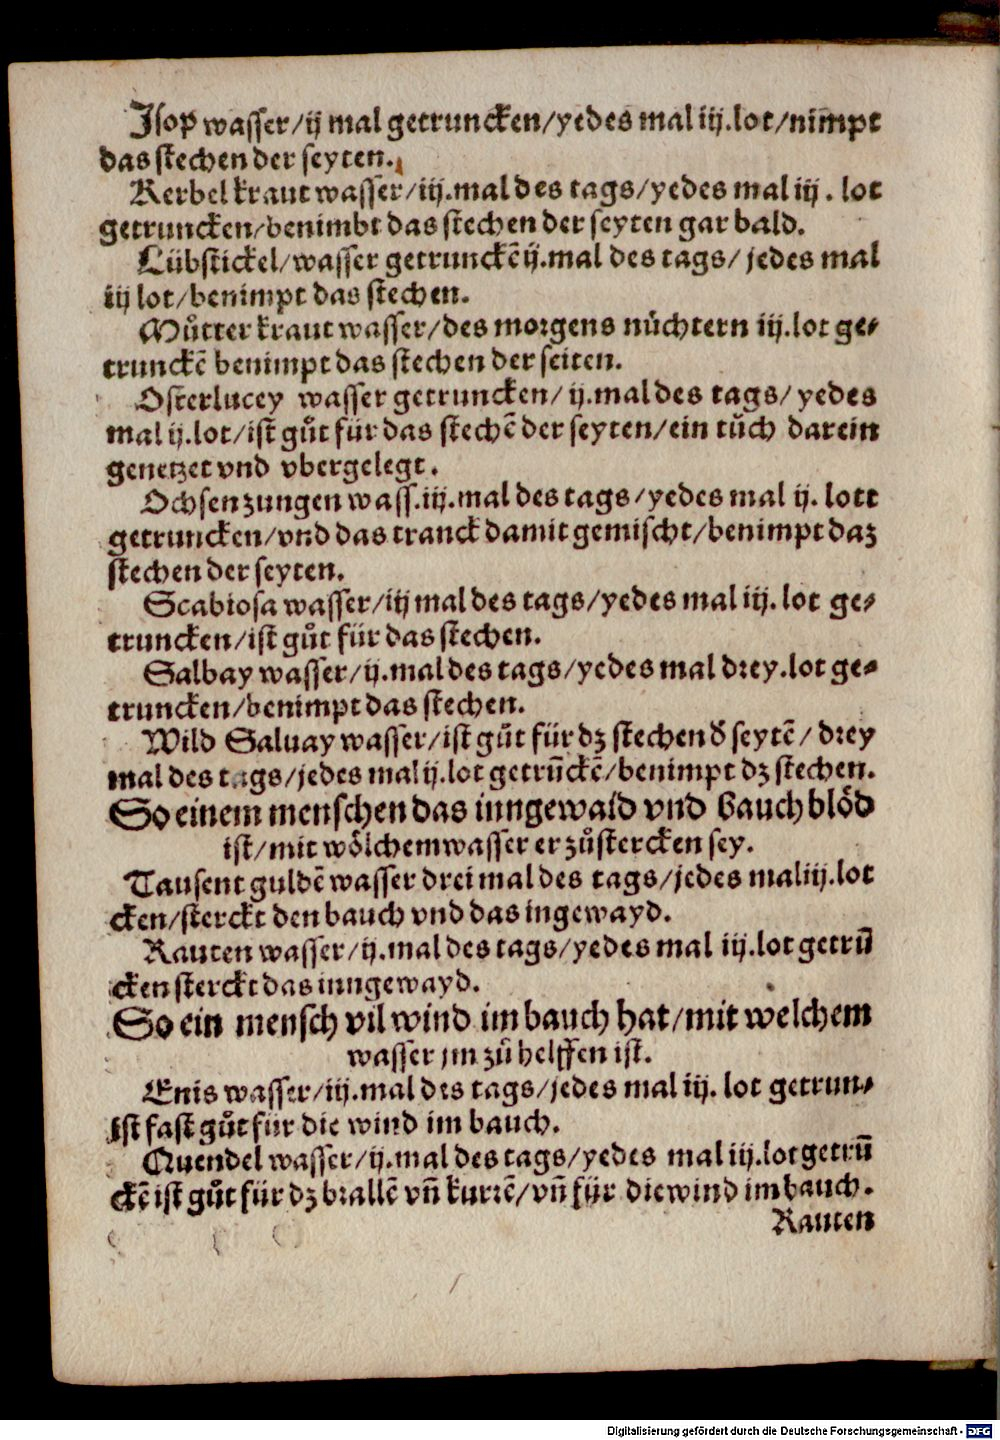 Isop wasser/ij mal getruncken/yedes mal iij.lot/nim̄pt
das stechen der seyten.
Kerbel kraut wasser/iij.mal des tags/yedes mal iij. lot
getruncken/benimbt das stechen der seyten gar bald.
Lübstickel/wasser getrunckē ij.mal des tags/ jedes mal
iij lot/benimpt das stechen.
Můtter kraut wasser/des morgens nüchtern iij.lot ge-
trunckē benimpt das stechen der seiten.
Osterlucey wasser getruncken/ ij.mal des tags/ yedes
mal ij.lot/ist gůt für das stechē der seyten/ein tůch darein
genetzet vnd vbergelegt.
Ochsenzungen wass.iij.mal des tags/yedes mal ij. lott
getruncken/vnd das tranck damit gemischt/benimpt daz
stechen der seyten.
Scabiosa wasser/iij mal des tags/yedes mal iij. lot ge-
truncken/ist gůt für das stechen.
Salbay wasser/ij.mal des tags/yedes mal drey.lot ge-
truncken/benimpt das stechen.
Wild Saluay wasser/ist gůt für dz stechen d̉ seytē/ drey
mal des tags/jedes mal ij.lot getrūckē/benimpt dz stechen.
So einem menschen das inngewaid vnd bauch blöd
ist/mit wölchem wasser er zůstercken sey.
Tausent guldē wasser drei mal des tags/jedes mal iij.lot
cken/sterckt den bauch vnd das ingewayd.
Rauten wasser/ij.mal des tags/yedes mal iij.lot getrū
cken sterckt das inngewayd.
So ein mensch vil wind im bauch hat/mit welchem
wasser jm zů helffen ist.
Enis wasser/iij.mal des tags/jedes mal iij. lot getrun-
ist fast gůt für die wind im bauch.
Quendel wasser/ij.mal des tags/yedes mal iij.lot getrū
ckē ist gůt für dz brallē vn̄ kurrē/vn̄ für die wind im bauch.
Rauten
Digitalisierung gefördert durch die Deutsche Forschungsgemeinschaft - DFG